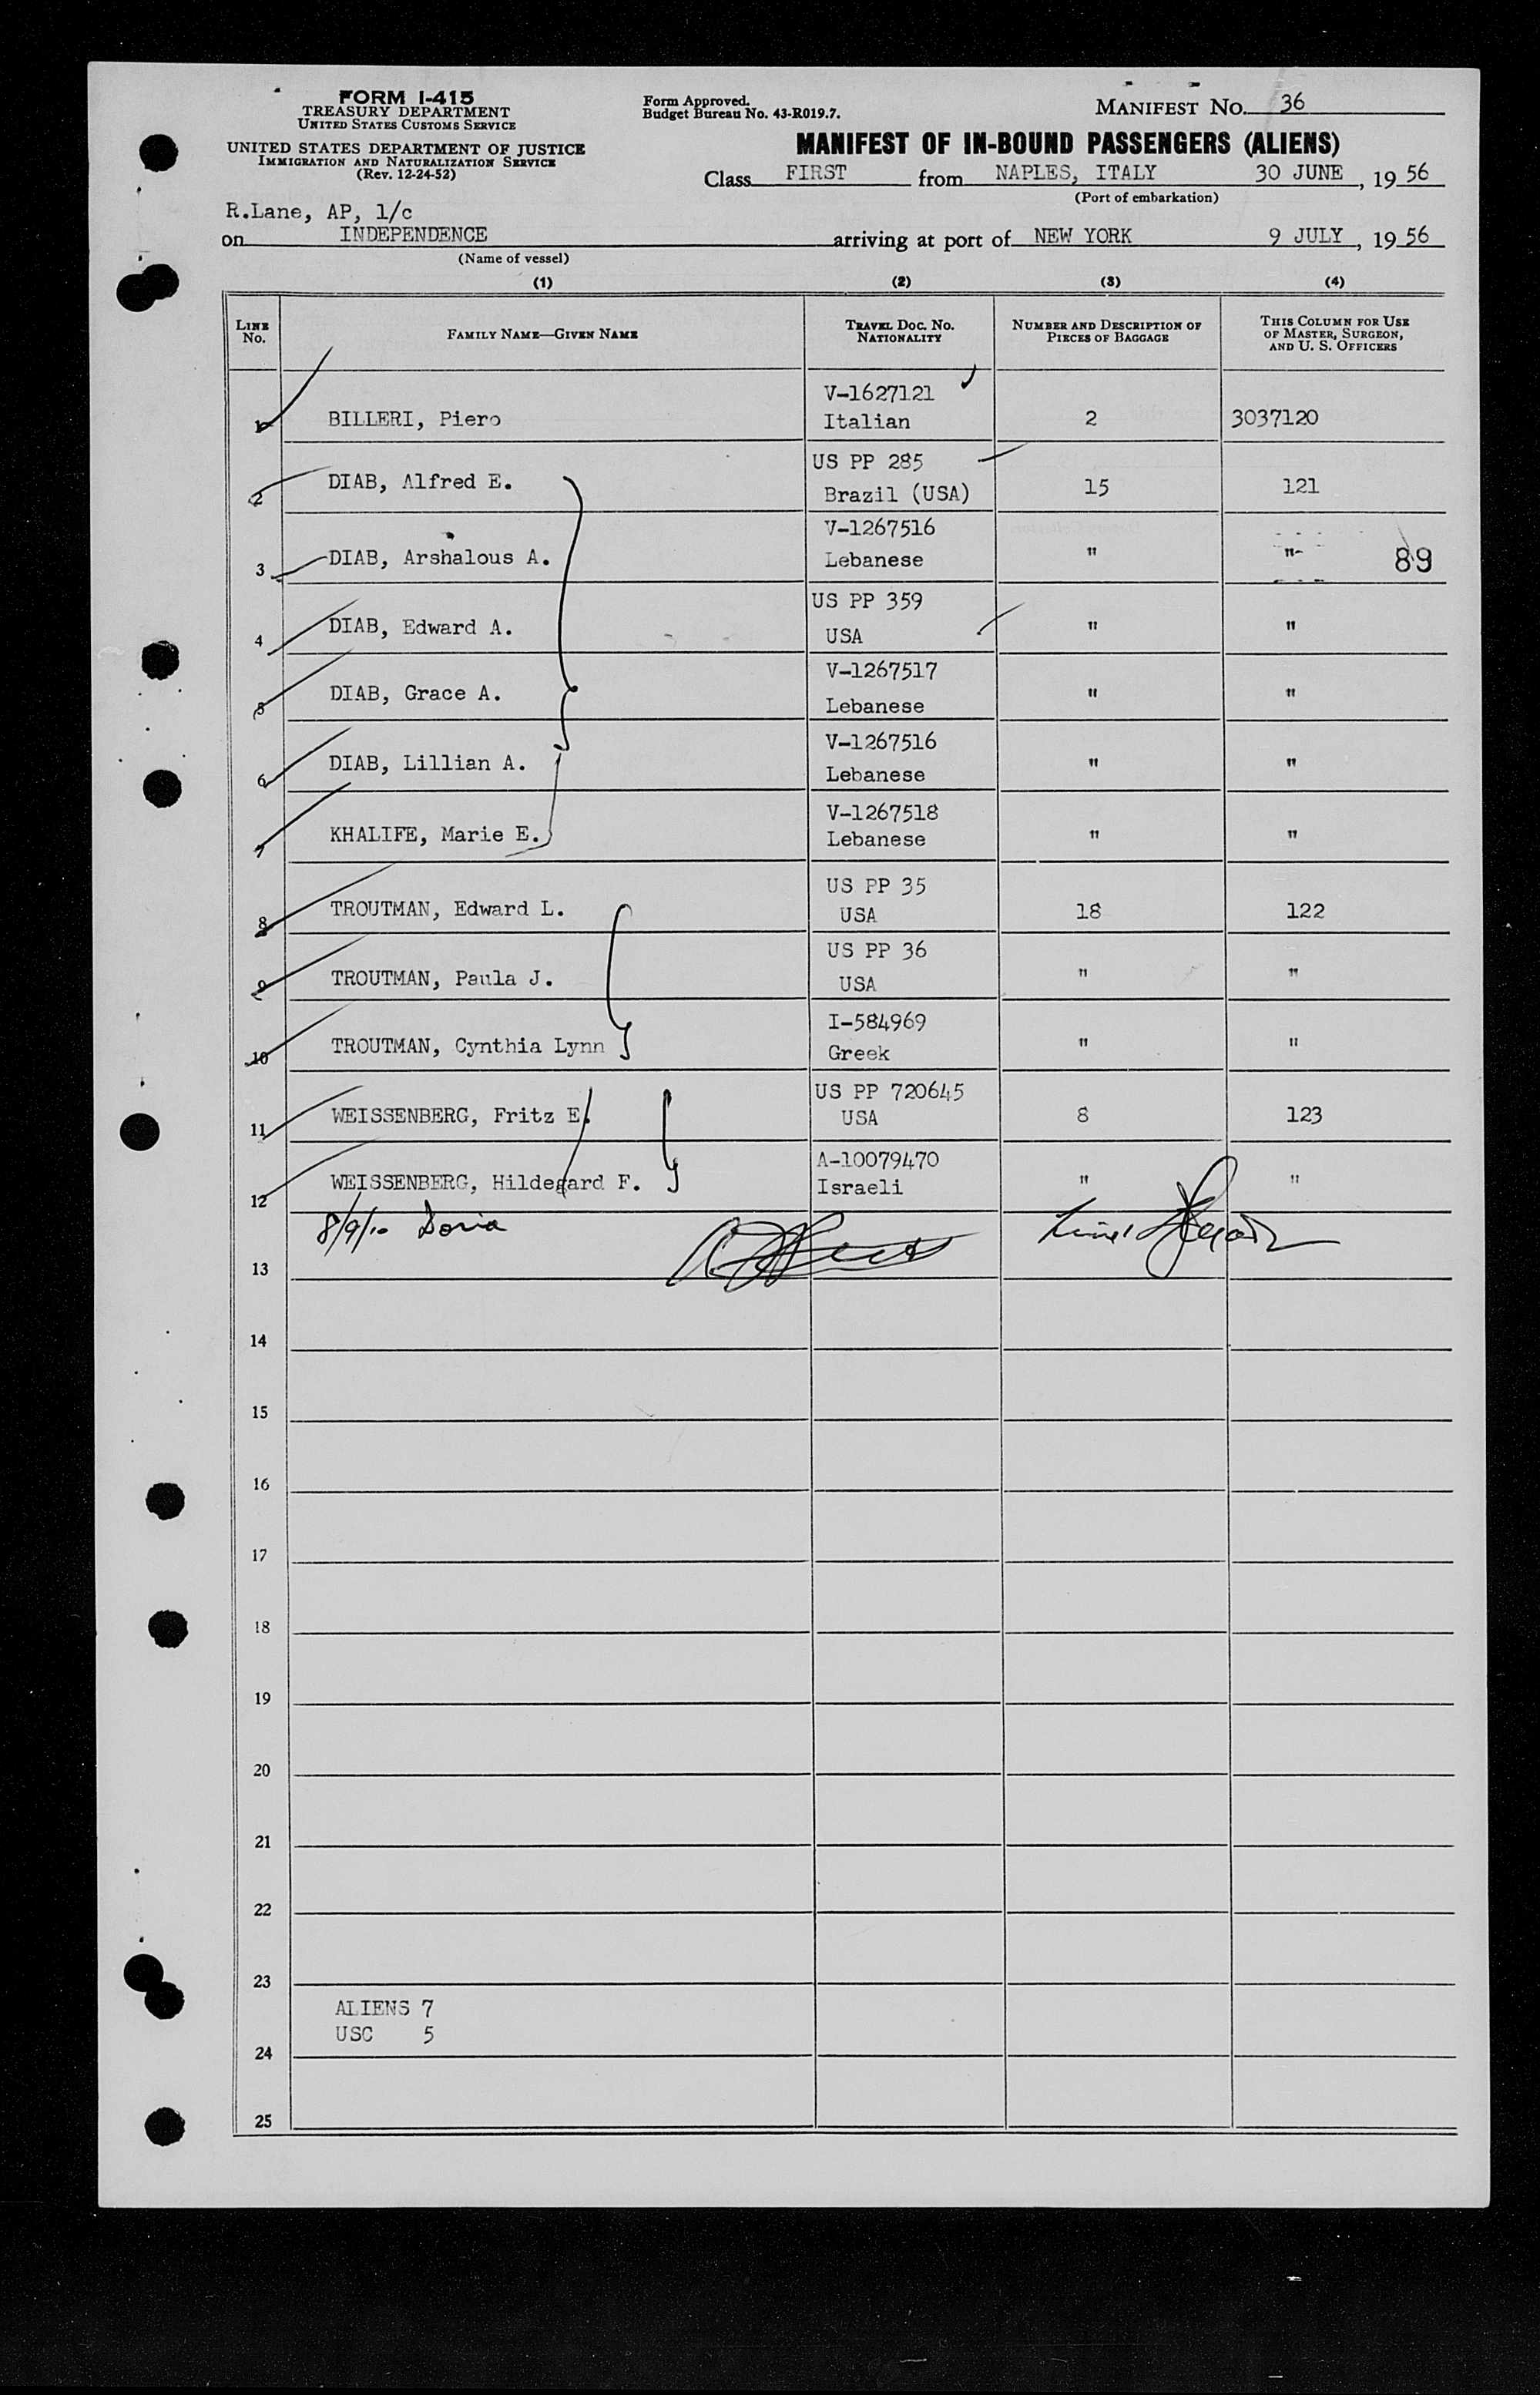 FORM I-415
TREASURY DEPARTMENT
UNITED STATES CUSTOMS SERVICE
UNITED STATES DEPARTMENT OF JUSTICE
IMMIGRATION AND NATURALIZATION SERVICE
(Rev. 12-24-52)
Form Approved.
Budget Bureau No. 43-R019.7.
MANIFEST No. 36
MANIFEST OF IN-BOUND PASSENGERS (ALIENS)
Class FIRST from NAPLES, ITALY 30 JUNE, 19 56
(Port of embarkation)
R.Lane, AP, 1/c
on INDEPENDENCE arriving at port of NEW YORK 9 JULY, 19 56
(Name of vessel)
(1) (2) (3) (4)
LINE No. FAMILY NAME—GIVEN NAME TRAVEL DOC. NO. NATIONALITY NUMBER AND DESCRIPTION OF PIECES OF BAGGAGE THIS COLUMN FOR USE OF MASTER, SURGEON, AND U. S. OFFICERS
1 BILLERI, Piero V-1627121 Italian 2 3037120
2 DIAB, Alfred E. US PP 285 Brazil (USA) 15 121
3 DIAB, Arshalous A. V-1267516 Lebanese " " 89
4 DIAB, Edward A. US PP 359 USA " "
5 DIAB, Grace A. V-1267517 Lebanese " "
6 DIAB, Lillian A. V-1267516 Lebanese " "
7 KHALIFE, Marie E. V-1267518 Lebanese " "
8 TROUTMAN, Edward L. US PP 35 USA 18 122
9 TROUTMAN, Paula J. US PP 36 USA " "
10 TROUTMAN, Cynthia Lynn I-584969 Greek " "
11 WEISSENBERG, Fritz E. US PP 720645 USA 8 123
12 WEISSENBERG, Hildegard F. A-10079470 Israeli " "
8/9/10 Doria
13
14
15
16
17
18
19
20
21
22
23
ALIENS 7
USC 5
24
25